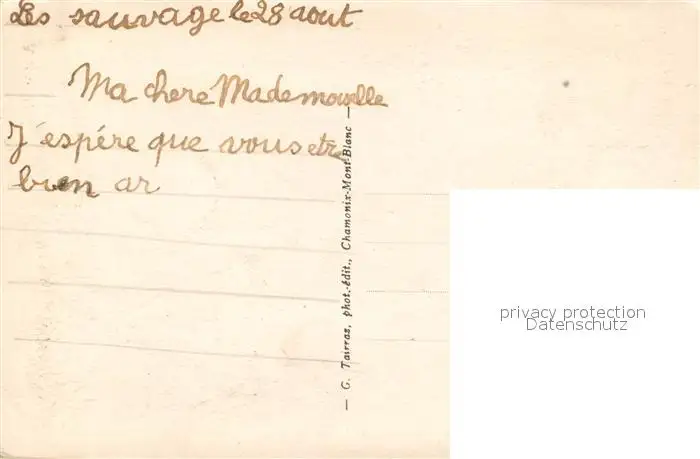 Les sauvage le 28 aout
Ma chere Mademoiselle
J'espére que vous etre
bien ar
— G. Tairraz, phot.-édit., Chamonix-Mont-Blanc —
privacy protection
Datenschutz